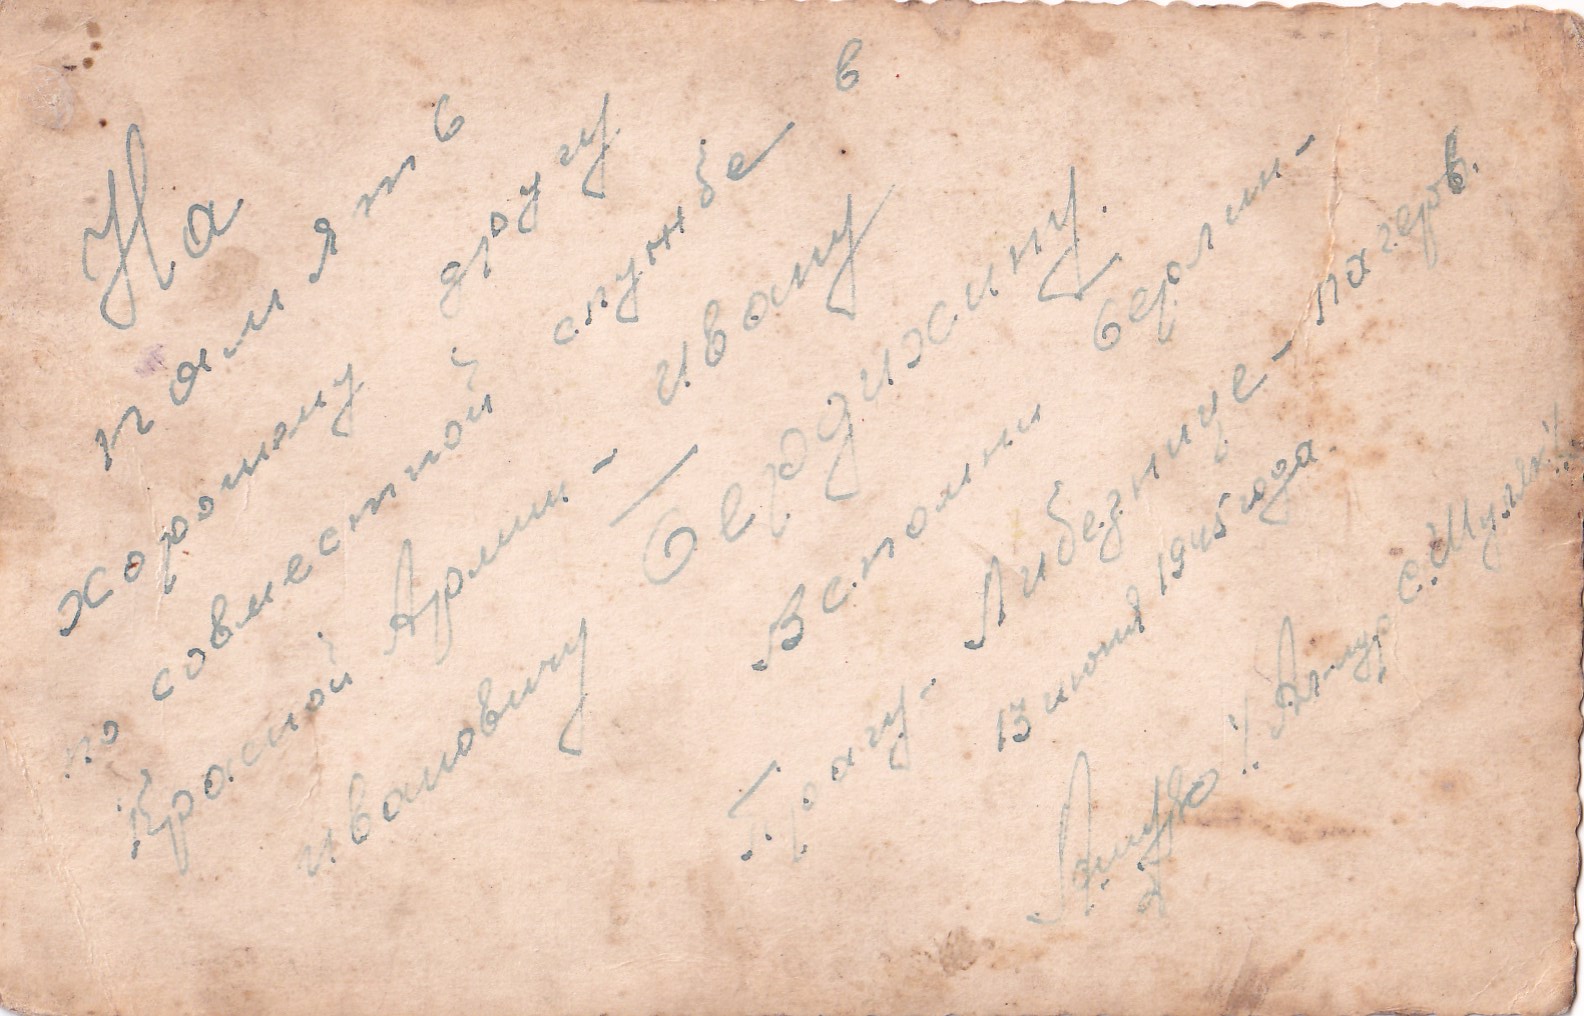 На
память
хорошему другу
по совместной службе в
Красной Армии ивану
ивановичу Бердихину.
Вспомни берлин-
Прагу- Либезнице- лагерь.
13 июня 1945 года.
Амур с.